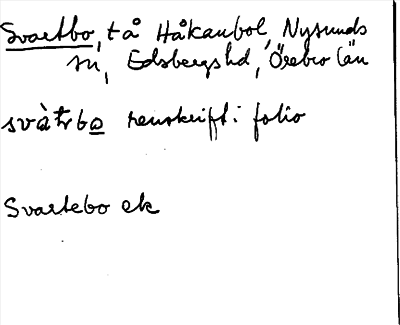 Svartbo, tå Håkanbol, Nysunds
sn, Edsbergs hd, Örebro län
svàt̄rbo̲ renskrift i folio
Svartebo ek